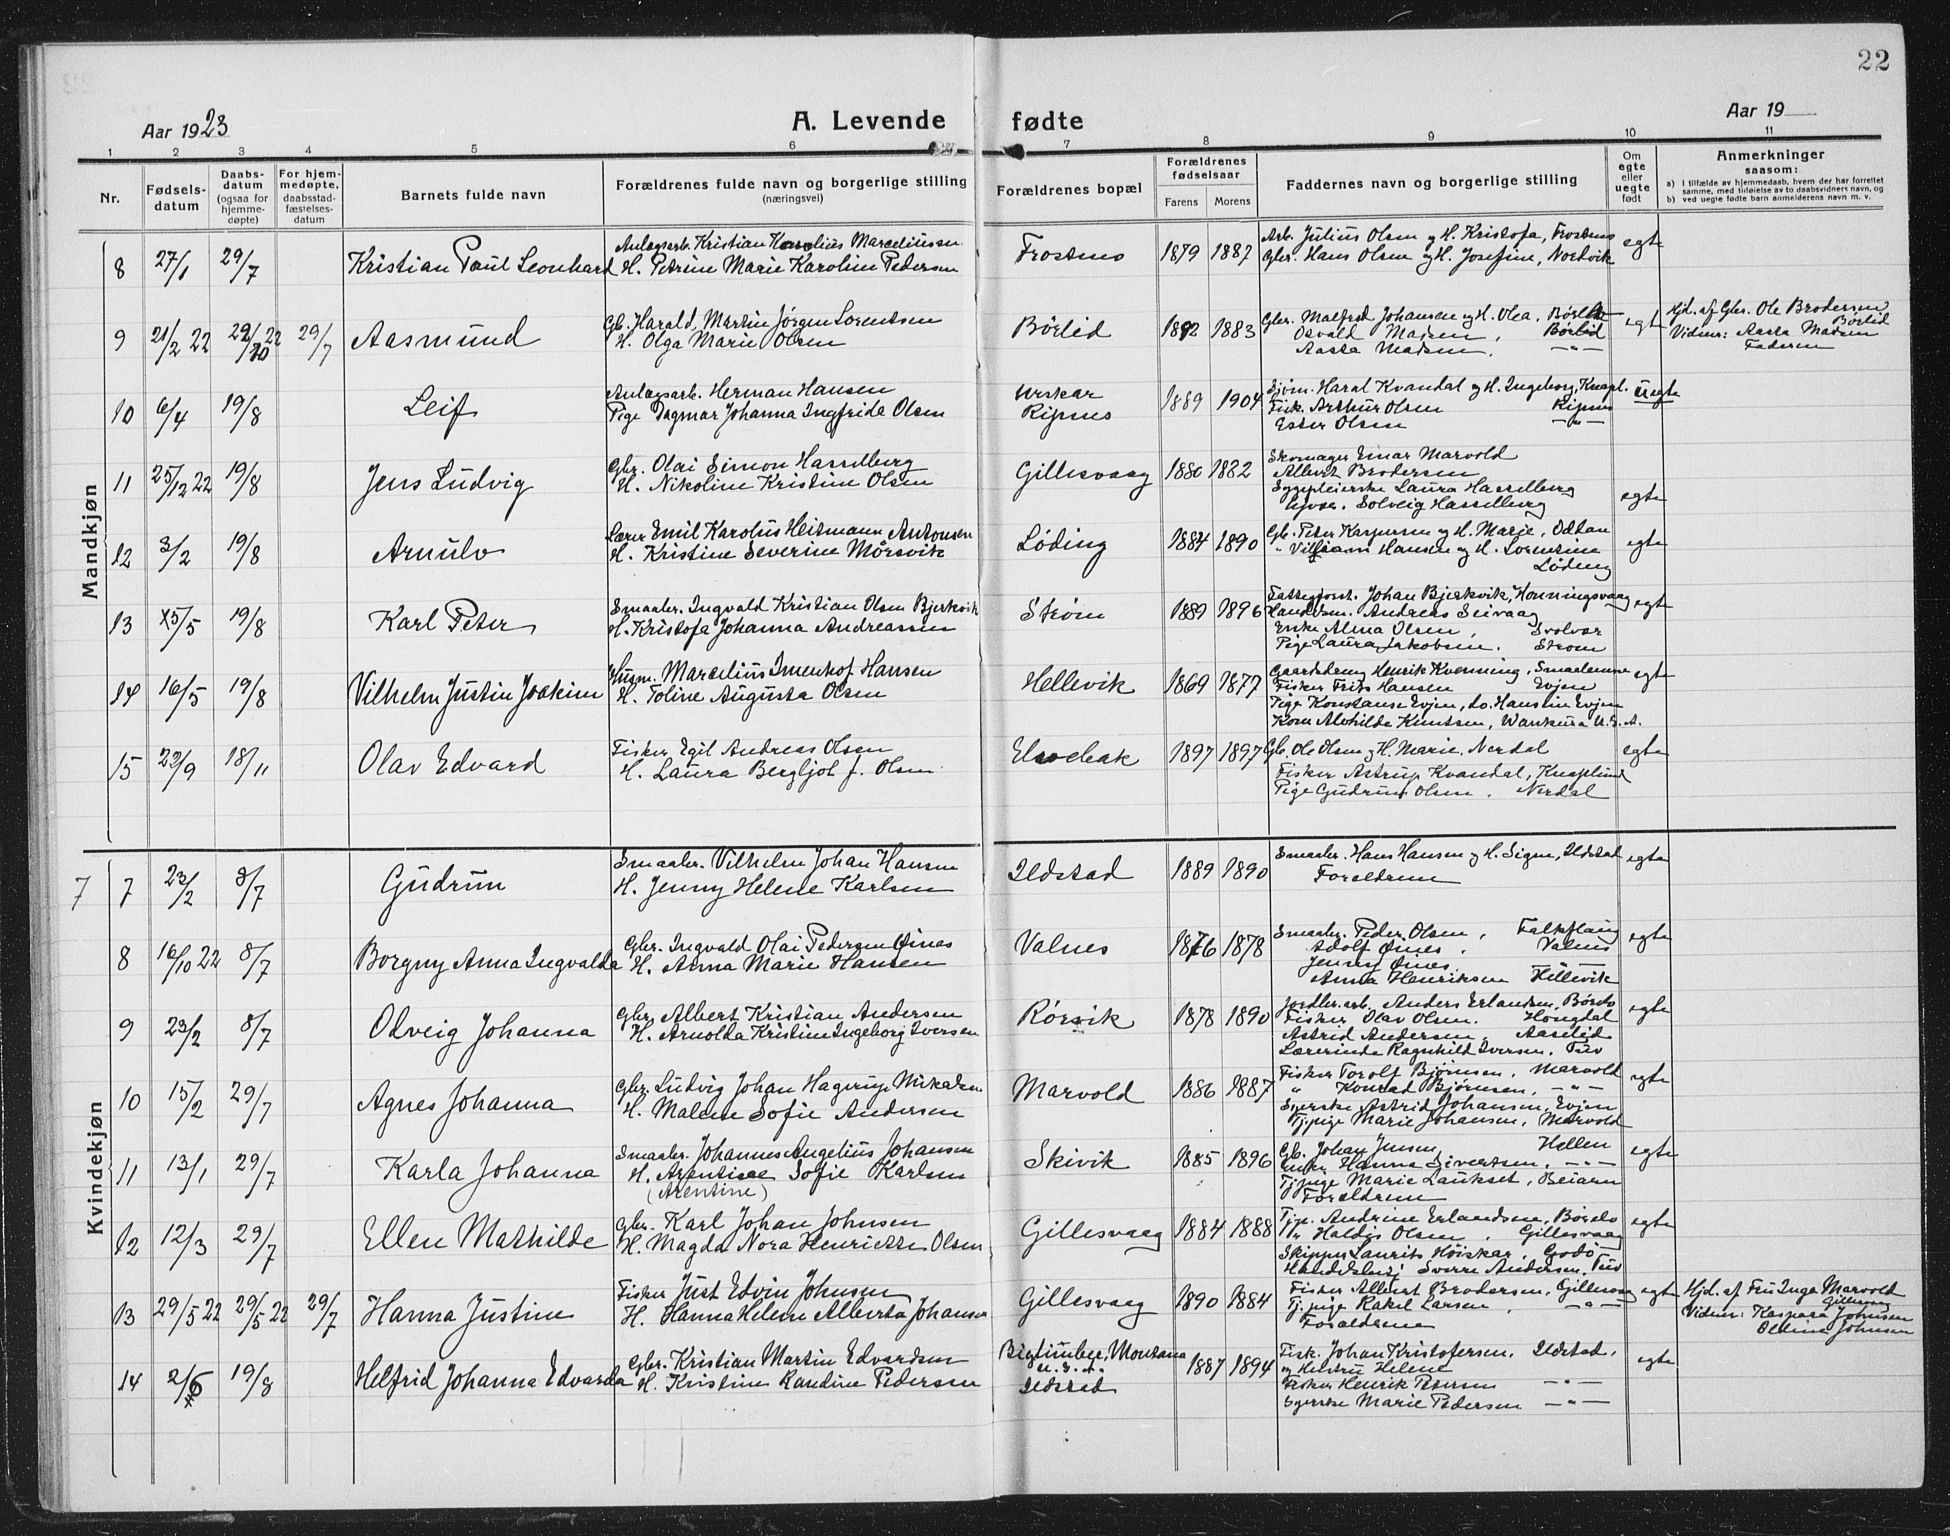 22
Aar 1923
A. Levende fødte
Aar 19
1 2 3 4 5 6 7 8 9 10 11
Nr.
Fødsels-
datum
Daabs-
datum
(ogsaa for
hjemme-
døpte)
For hjem-
medøpte,
daabsstad-
fæstelses-
datum
Barnets fulde navn
Forældrenes fulde navn og borgerlige stilling
(næringsvei)
Forældrenes bopæl
Forældrenes
fødselsaar
Farens Morens
Faddernes navn og borgerlige stilling
Om
egte
eller
uegte
født
Anmerkninger
saasom:
a) I tilfælde av hjemmedaab, hvem der har forrettet
samme, med tilføielse av to daabsvidners navn, og
b) ved uegte fødte barn anmelderens navn m. v.
Mandkjøn
8 27/1 29/7 Kristian Paul Leonhard
Anlægsarb. Kristian Kornelius Marceliussen
H. Petrine Marie Karoline Pedersen
Frostnes 1879 1887
Arb. Julius Olsen og H. Kristofa, Frostnes
Gbr. Hans Olsen og H. Josefine, Nordvik
egte
9 21/2 22 22/10 22 29/7 Aasmund
Gb. Harald, Martin Jørgen Lorentsen
H. Olga Marie Olsen
Børlid 1882 1883
Gbr. Malfred Johansen og H. Olea, Børlid
Osvald Madsen, Børlid
Aasta Madsen, —"—
egte
Hjd. af Gbr. Ole Brodersen
Børlid
Vidner: Aasta Madsen
Faderen
10 6/4 19/8 Leif
Anlægsarb. Herman Hansen
Pige Dagmar Johanna Ingfrida Olsen
Urskar
Ripnes 1889 1904
Sjøm. Haral Kvandal og H. Ingeborg, Knapl.
Fisk. Arthur Olsen Ripnes
Ester Olsen —"—
uegte
11 25/12 22 19/8 Jens Ludvig
Gbr. Olai Simon Hasselberg
H. Nikoline Kristine Olsen
Gillesvaag 1880 1882
Skomager Einar Marvold
Albert Brodersen
Sygepleierske Laura Hasselberg
Solveig Hasselberg
egte
12 3/2 19/8 Arnulv
Lærer Emil Karolus Heitmann Antonsen
H. Kristine Severine Mørsvik
Løding 1884 1890
Gb. Peter Kaspersen og H. Marie, Oddan
" Villiam Hansen og H. Lorentine
Løding
egte
13 15/5 19/8 Karl Peter
Smaabr. Ingvald Kristian Olsen Bjerkvik
H. Kristofa Johanna Andreassen
Strøm 1889 1896
Fattigforst. Johan Bjerkvik, Honningsvaag
Handelsm. Andreas Seivaag
Enke Alma Olsen, Svolvær
Pige Laura Jakobsen, Strøm
egte
14 16/5 19/8 Vilhelm Justin Joakim
Husm. Marcelius Imenhof Hansen
H. Toline Augusta Olsen
Hellevik 1869 1877
Gaardsdreng Henrik Kvenning, Smaalenene
Fisker Frits Hansen Evjen
Pige Konstanse Evjen, do. Hanstin Evjen
Kone Alvhilde Knutsen, Wankusa U.S.A.
egte
15 29/9 18/11 Olav Edvard
Fisker Egil Andreas Olsen
H. Laura Bergljot f. Olsen
Elvebak 1897 1897
Gb. Ole Olsen og H. Marie, Nerdal
Fisker Astrup Kvandal, Knaplund
Pige Gudrun Olsen, Nerdal
egte
Kvindekjøn
7
7 23/2 8/7 Gudrun
Smaabr. Vilhelm Johan Hansen
H. Jenny Helene Karlsen
Ildstad 1889 1890
Smaabr. Hans Hansen og H. Signe, Ildstad
Forældrene
egte
8 16/10 22 8/7 Borgny Anna Ingvalda
Gbr. Ingvald Olai Pedersen Øines
H. Anna Marie Hansen
Valnes 1876 1878
Smaabr. Peder Olsen, Falkflaug
Adolf Øines, Valnes
Jenny Øines
Anna Henriksen Hellevik
egte
9 23/2 8/7 Odveig Johanna
Gbr. Albert Kristian Andersen
H. Arnolda Kristine Ingeborg Iversen
Rørvik 1878 1890
Jordbr.arb. Anders Erlandsen, Børelv
Fisker Olav Olsen, Hongdal
Astrid Andersen, Aaselid
Lærerinde Ragnhild Iversen, Tuv
egte
10 15/2 29/7 Agnes Johanna
Gbr. Ludvig Johan Hagerup Mikalsen
H. Malene Sofie Andersen
Marvold 1886 1887
Fisker Torolf Bjørnsen, Marvold
" Konrad Bjørnsen, —"—
Syerske Astrid Johansen, Evjen
Tj.pige Marie Johansen, Marvold
egte
11 13/1 29/7 Karla Johanna
Smaabr. Johannes Angelius Johansen
H. Arentise Sofie Karlsen
(Arentine)
Skivik 1885 1896
Gb. Johan Jensen, Hellen
Enke Hanna Sivertsen, —"—
Tj.pige Marie Laukset, Beiarn
Forældrene
egte
12 12/3 29/7 Ellen Mathilde
Gbr. Karl Johan Johnsen
H. Magda Nora Henriette Olsen
Gillesvaag 1884 1888
Tjp. Andrine Erlandsen, Børelv
" Haldis Olsen, Gillesvaag
Skipper Laurits Høiskar, Godø
Handelsbestj. Sverre Andersen, Tuv
egte
13 29/5 22 29/5 22 29/7 Hanna Justine
Fisker Just Edvin Johnsen
H. Hanna Helene Alberta Johansen
Gillesvaag 1890 1884
Fisker Albert Brodersen, Gillesvaag
Tj.pige Rakel Larsen, —"—
Forældrene
egte
Hjd. af Fru Inga Marvold
Gillesvaag
Vidner: Kaspara Johnsen
Oldine Johnsen
14 2/6 19/8 Helfrid Johanna Edvarda
Gbr. Kristian Martin Edvardsen
H. Kristine Randine Pedersen
Bigtimber, Montana
U.S.A.
Ildstad 1887 1894
Fisk. Johan Kristofersen, Ildstad,
og Hustru Helene
Fisker Henrik Petersen —"—
Syerske Marie Pedersen —"—
egte